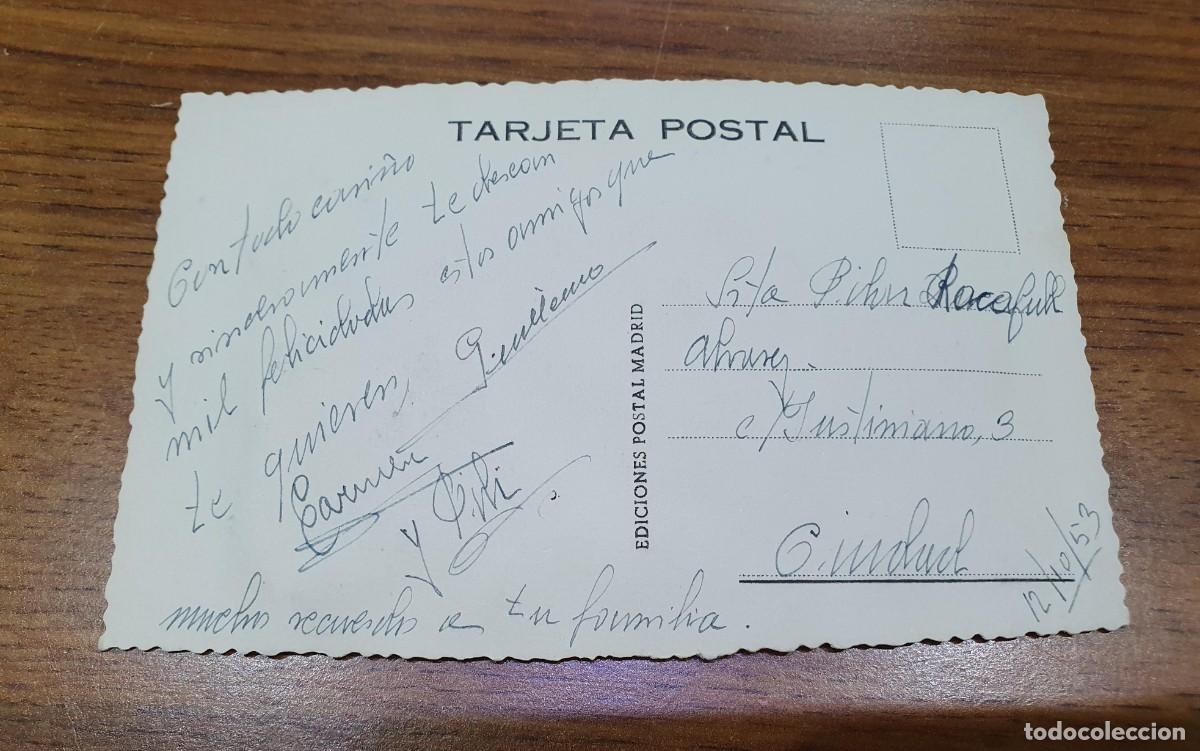 TARJETA POSTAL
Con todo cariño
y sinceramente te desean
mil felicidades estos amigos que
te quieren, Guillermo
Carmen
y Pili
muchos recuerdos a tu familia.
EDICIONES POSTAL MADRID
Srta Pilar Rocafull
Alvarez.
c/ Justiniano, 3
Ciudad
12/10/53
todocoleccion